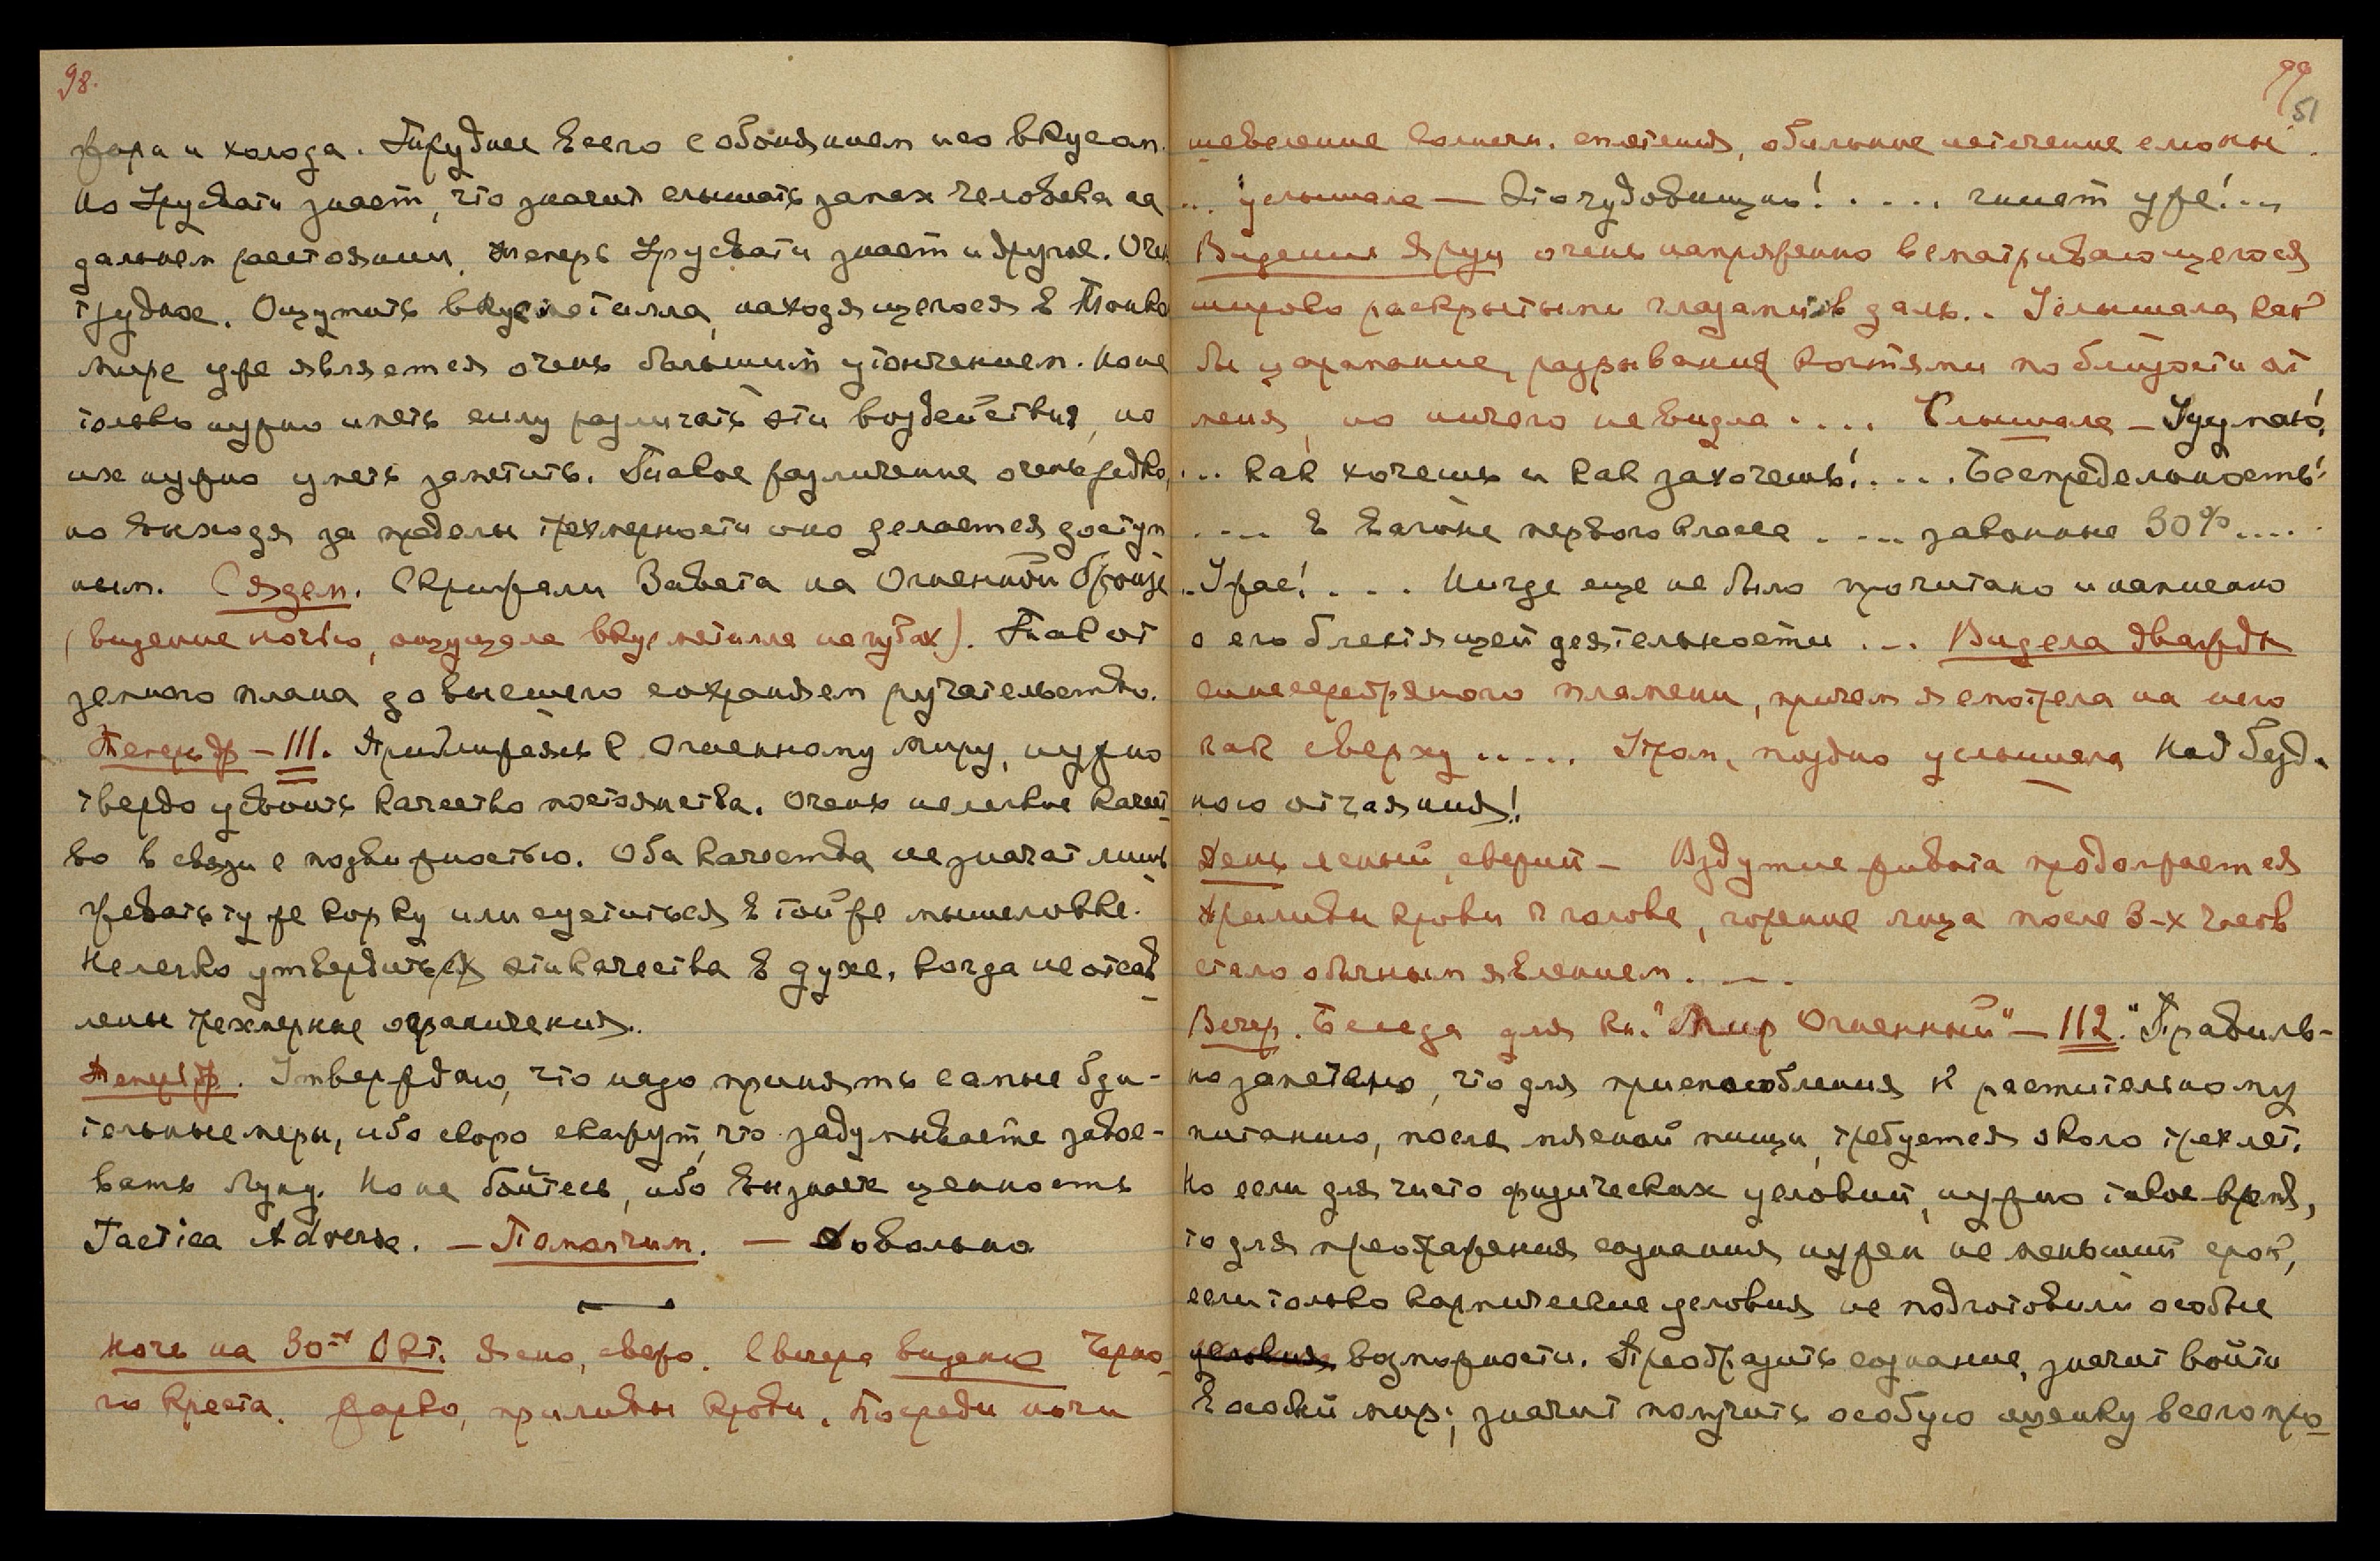 98.
жара и холода. Труднее всего с обонянием и со вкусом.
Но Урусвати знает, что значит слышать запах человека на
дальнем растоянии, теперь Урусвати знает и другое. Очень
трудное. Ощутить вкус металла, находящегося в Тонком
мире уже является очень большим утончением. Но не
только нужно иметь силу различать эти воздействия, но
их нужно уметь заметить. Такое различение очень редко,
но выходя за пределы трехмерности оно делается доступ
ным. Сядем. Скрижали Завета на Огненной бронзе
(видение ночью, ощущала вкус металла на губах). Так от
земного плана до высшего сохраняем ручательство.
Теперь ф – 111. Приближаясь к Огненному миру, нужно
твердо усвоить качество постоянства. Очень нелегкое качест
во в связи с подвижностью. Оба качества не значат лишь
жевать ту же корку или суетиться в той же мышеловке.
Нелегко утвердить эти качества в духе, когда не остав
лены трехмерные ограничения.
Теперь ф. Утверждаю, что надо принять самые бди-
тельные меры, ибо скоро скажут, что задумываете завое-
вать Луну. Но не бойтесь, ибо вы знаете ценность
Tactica Adversa. – Помолчим. – Довольно
Ночь на 30ое Окт. Ясно, свежо. С вечера видение Черно
го креста. Жарко, приливы крови. Посреди ночи
99
51
шевеление солнечн. сплетения, обильное истечение слюны.
... Услышала – Это чудовищно! .... гинет уже!...
Видения Яруи очень напряженно всматривающегося
широко раскрытыми глазами в даль.. Услышала как
бы царапание, разрывания когтями по близости от
меня, но ничего не видела .... Слышала – Удумаю,
... как хочешь и как захочешь! .... Беспредельность!
.... в вагоне первого класса .... законные 30% ....
.. Ужас! .... Нигде еще не было прочитано и написано
о его блестящей деятельности ... Видела дважды
синесеребряного пламени, причем я смотрела на него
как сверху ..... Утром, поздно услышала Над безд-
ною отчаяния!
День ясный, свежий – Вздутие живота продолжается
Приливы крови к голове, горение лица после 3-х часов
стало обычным явлением. –.
Вечер. Беседа для кн. "Мир Огненный" – 112. "Правиль-
но замечено, что для приспособления к растительному
питанию, после мясной пищи, требуется около трех лет.
Но если для чисто физических условий, нужно такое время,
то для преображения сознания нужен не меньший срок,
если только кармические условия не подготовили особые
условия возможности. Преобразить сознание, значит войти
в особый мир; значит получить особую оценку всего про